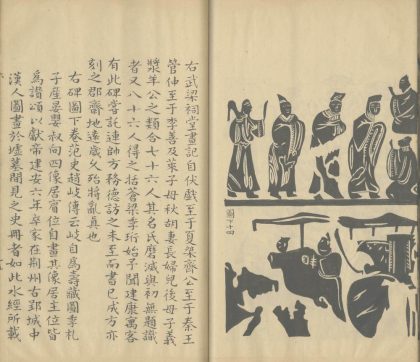 圖下十四
右武梁祠堂畫記自伏戲至于夏桀齊公至于秦王
管仲至于李善及萊子母秋胡妻長婦兒後母子義
漿羊公之類合七十六人其名氏磨滅與初無題識
者又八十六人得之括蒼梁季珩始予聞建康寓客
有此碑嘗託連帥方務德訪之未至而書已成方亦
刻之郡齋地遠歲久殆將亂真也
右碑圖下卷范史趙岐傳云岐自爲壽藏圖季札
子產晏嬰叔向四像居賓位自畫其像居主位皆
爲讚頌以獻帝建安六年卒冢在荊州古郢城中
漢人圖畫於墟墓間見之史冊者如此水經所載